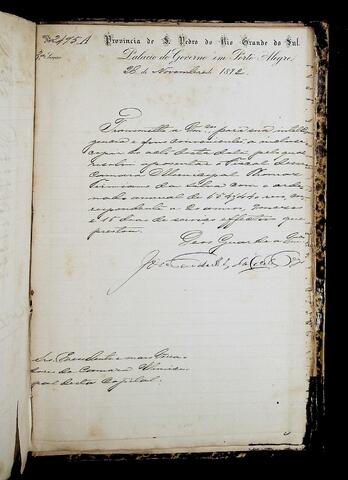 No 2475 A
Provincia de S. Pedro do Rio Grande do Sul.
Palacio do Governo em Porto Alegre,
de Novembro de 1872
Transmitto a para sua intelli
gencia e fins convenientes a inclusa
copia do acto desta data pelo qual
resolvi aposentar o Fiscal dessa
Camara Municipal Thomaz
da Silva com o orde
nado annual de
respondente a annos
e 15 dias de serviço effectivo que
prestou.
Deos Guarde a
Snrs. Presidente e mais Verea
dores da Camara Munici
pal desta Capital.